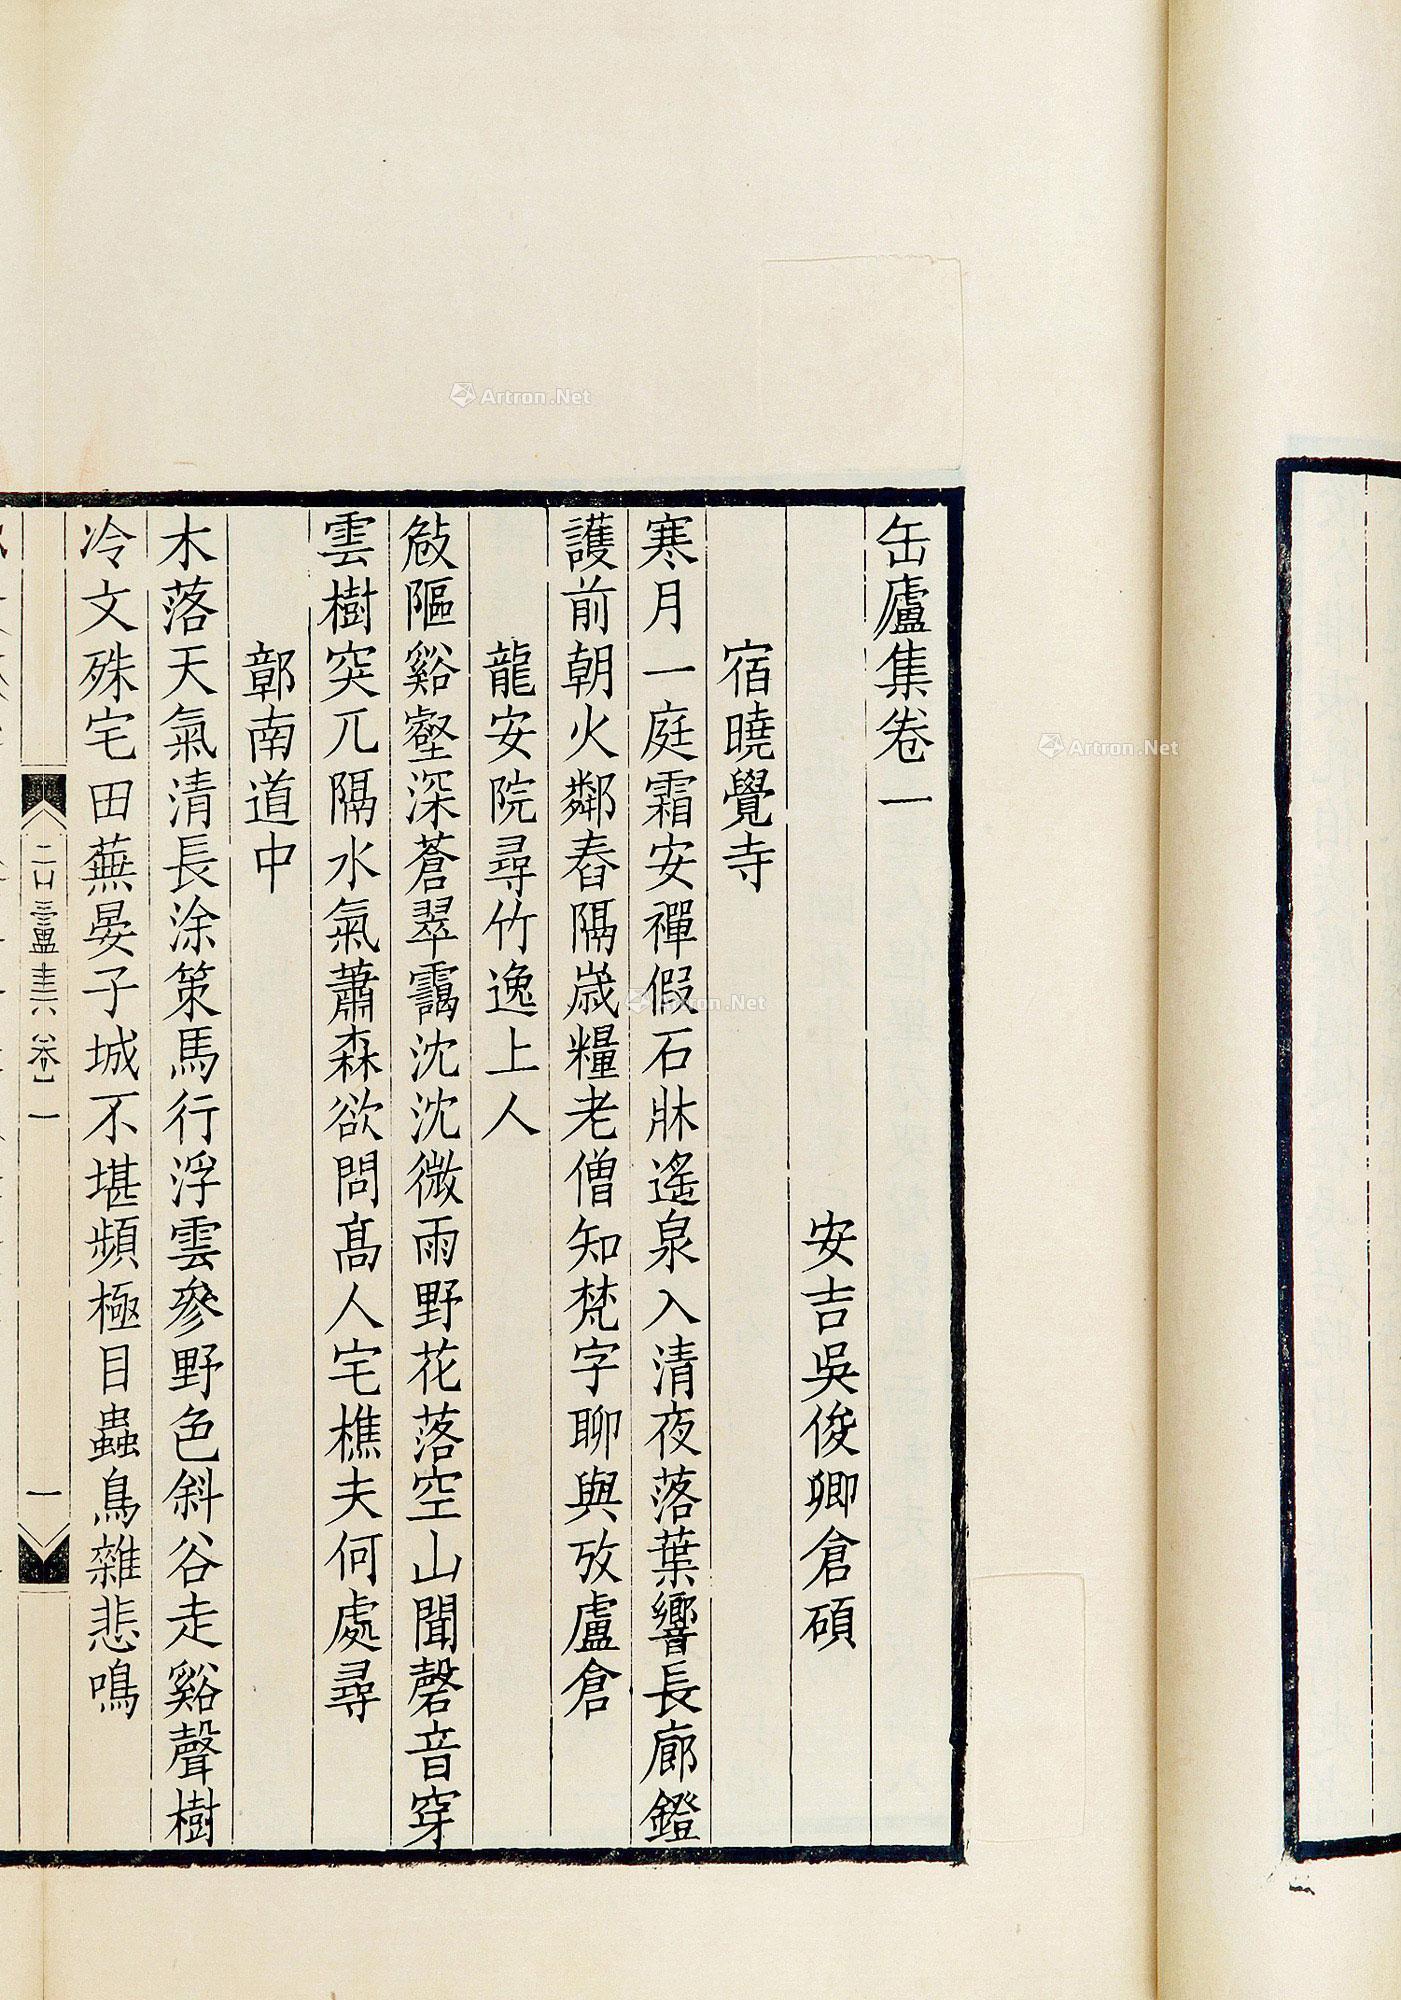 缶廬集卷一
安吉吳俊卿倉碩
宿曉覺寺
寒月一庭霜安禪假石牀遙泉入清夜落葉響長廊鐙
護前朝火鄰舂隔歲糧老僧知梵字聊與攷盧倉
龍安院尋竹逸上人
攲嶇谿壑深蒼翠靄沈沈微雨野花落空山聞磬音穿
雲樹突兀隔水氣蕭森欲問高人宅樵夫何處尋
鄣南道中
木落天氣清長涂策馬行浮雲參野色斜谷走谿聲樹
冷文殊宅田蕪晏子城不堪頻極目蟲鳥雜悲鳴
一
Artron.Net
Artron.Net
Artron.Net